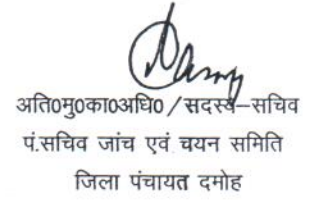 अति0मु0का0अधि0/सदस्य–सचिव
पं.सचिव जांच एवं चयन समिति
जिला पंचायत दमोह